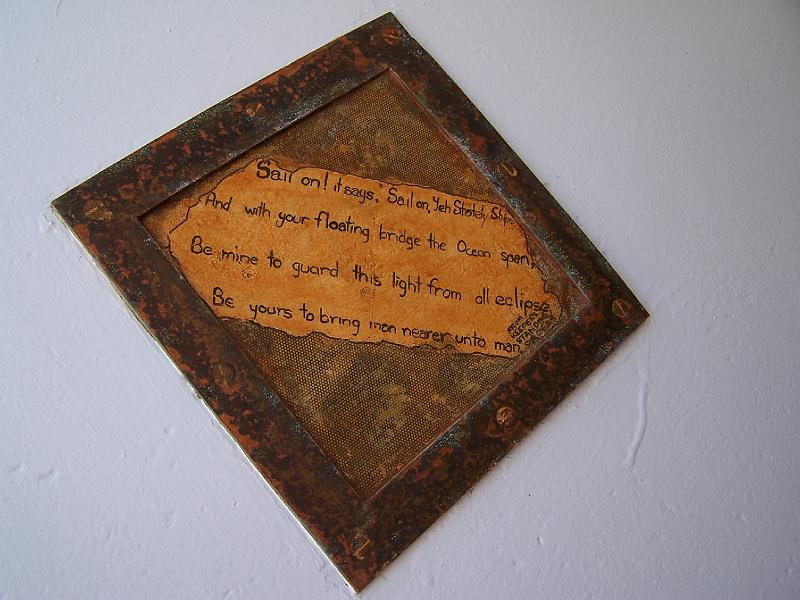 Sail on! it says, "Sail on, Yeh Stately Ships
And with your floating bridge the Ocean span,
Be mine to guard this light from all eclipse
Be yours to bring man nearer unto man.
FROM